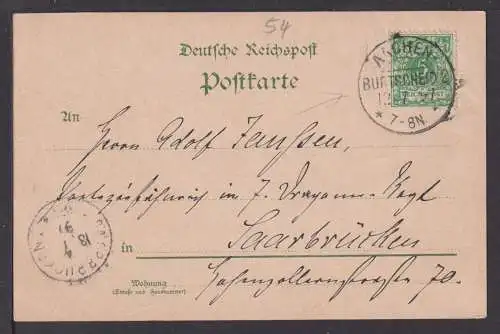 54
Deutsche Reichspost
Postkarte
AACHEN
BURTSCHEID
* 7-8N.
An
Herrn Adolf Janssen,
Portepeefähnrich in 7. Dragoner-Regt
in Saarbrücken
Hohenzollernstrasse 70.
Wohnung
(Straße und Hausnummer)
SAARBRÜCKEN
18
7
97